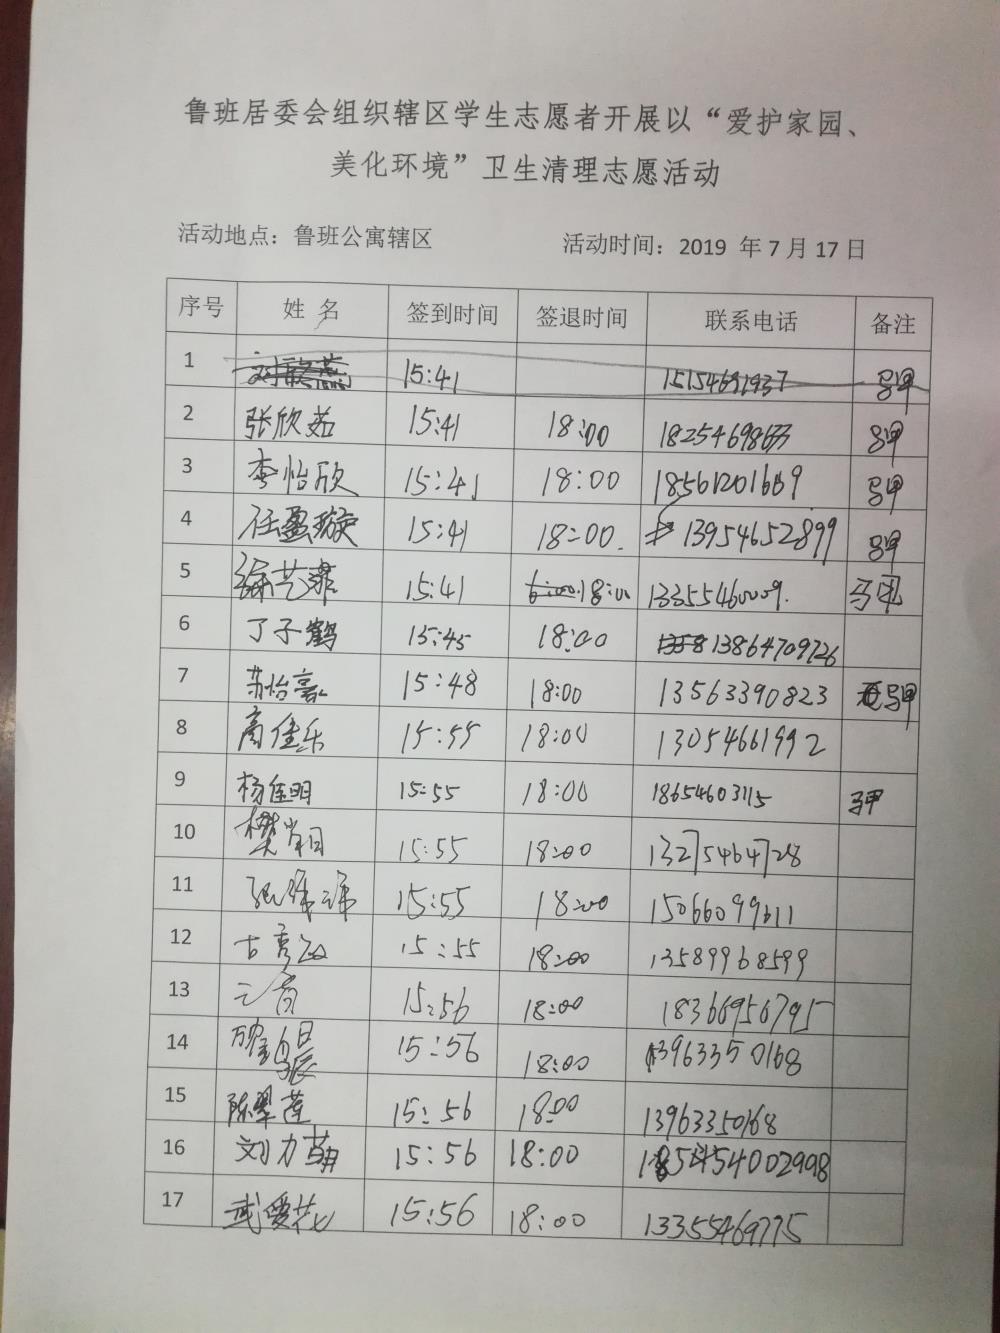 鲁班居委会组织辖区学生志愿者开展以“爱护家园、
美化环境”卫生清理志愿活动
活动地点：鲁班公寓辖区 活动时间：2019 年 7 月 17 日
序号 姓 名 签到时间 签退时间 联系电话 备注
1 15:41 15154691937 马甲
2 张欣茹 15:41 18:00 马甲
3 李怡欣 15:41 18:00 18561201669 马甲
4 任盈璇 15:41 18:00 13954652899 马甲
5 徐艺菲 15:41 18:00 13355460009 马甲
6 丁子鹤 15:45 18:00 13864709726
7 苏怡嘉 15:48 18:00 13563390823 马甲
8 高佳乐 15:55 18:00 13054661992
9 杨佳明 15:55 18:00 18654603115 马甲
10 樊 15:55 18:00 13275464728
11 15:55 18:00 15066099611
12 古秀 15:55 18:00 13589968599
13 15:56 18:00 18366956795
14 15:56 18:00 13963350168
15 陈翠莲 15:56 18:00 13963350168
16 刘力萌 15:56 18:00
17 武爱花 15:56 18:00 13355469775